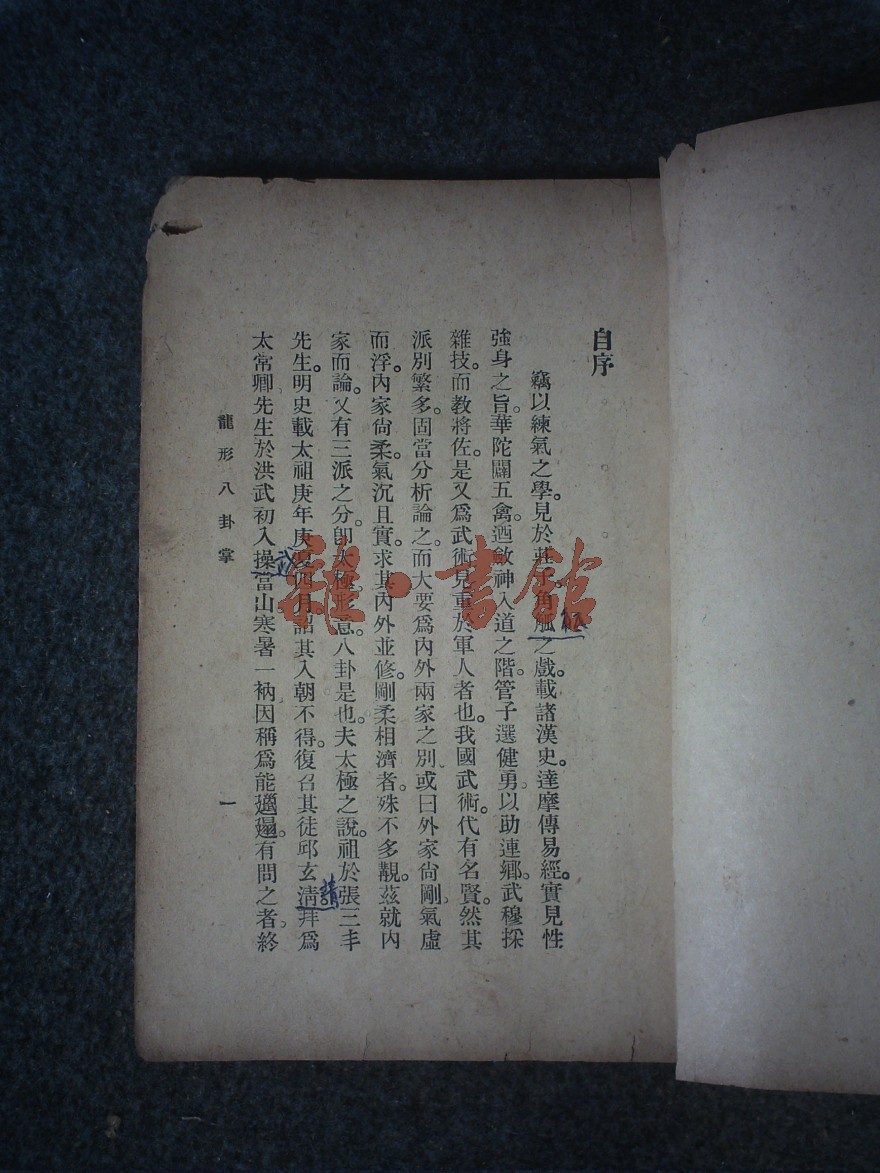 自序
竊以練氣之學。見於莊子。角觝之戲。載諸漢史。達摩傳易經。實見性
強身之旨。華陀闢五禽。迺斂神入道之階。管子選健勇以助連鄉。武穆採
雜技。而教將佐。是又爲武術見重於軍人者也。我國武術。代有名賢。然其
派別繁多。固當分析論之。而大要爲內外兩家之別。或曰外家尙剛。氣虛
而浮。內家尙柔。氣沉且實。求其內外並修。剛柔相濟者。殊不多覯。茲就內
家而論。又有三派之分。卽太極。形意。八卦是也。夫太極之說。祖於張三丰
先生。明史載太祖庚年庚夏四月。詔其入朝不得。復召其徒邱玄淸拜爲
請
太常卿先生於洪武初入操當山寒暑一衲因稱爲能邋遢。有問之者。終
武
龍形八卦掌
一
雜·書館